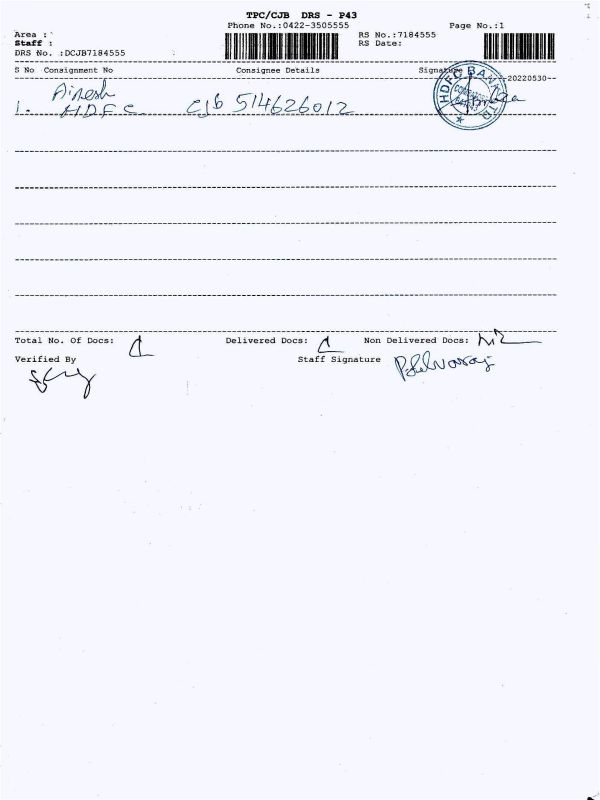 TPC/CJB DRS - P43
Phone No.:0422-3505555 Page No.:1
Area : RS No.:7184555
Staff : RS Date:
DRS No. :DCJB7184555
S No Consignment No Consignee Details Signature
20220530
1. HDFC CJB 514626012
HDFC BANK LTD
Total No. Of Docs: 1 Delivered Docs: 1 Non Delivered Docs: Nil
Verified By Staff Signature